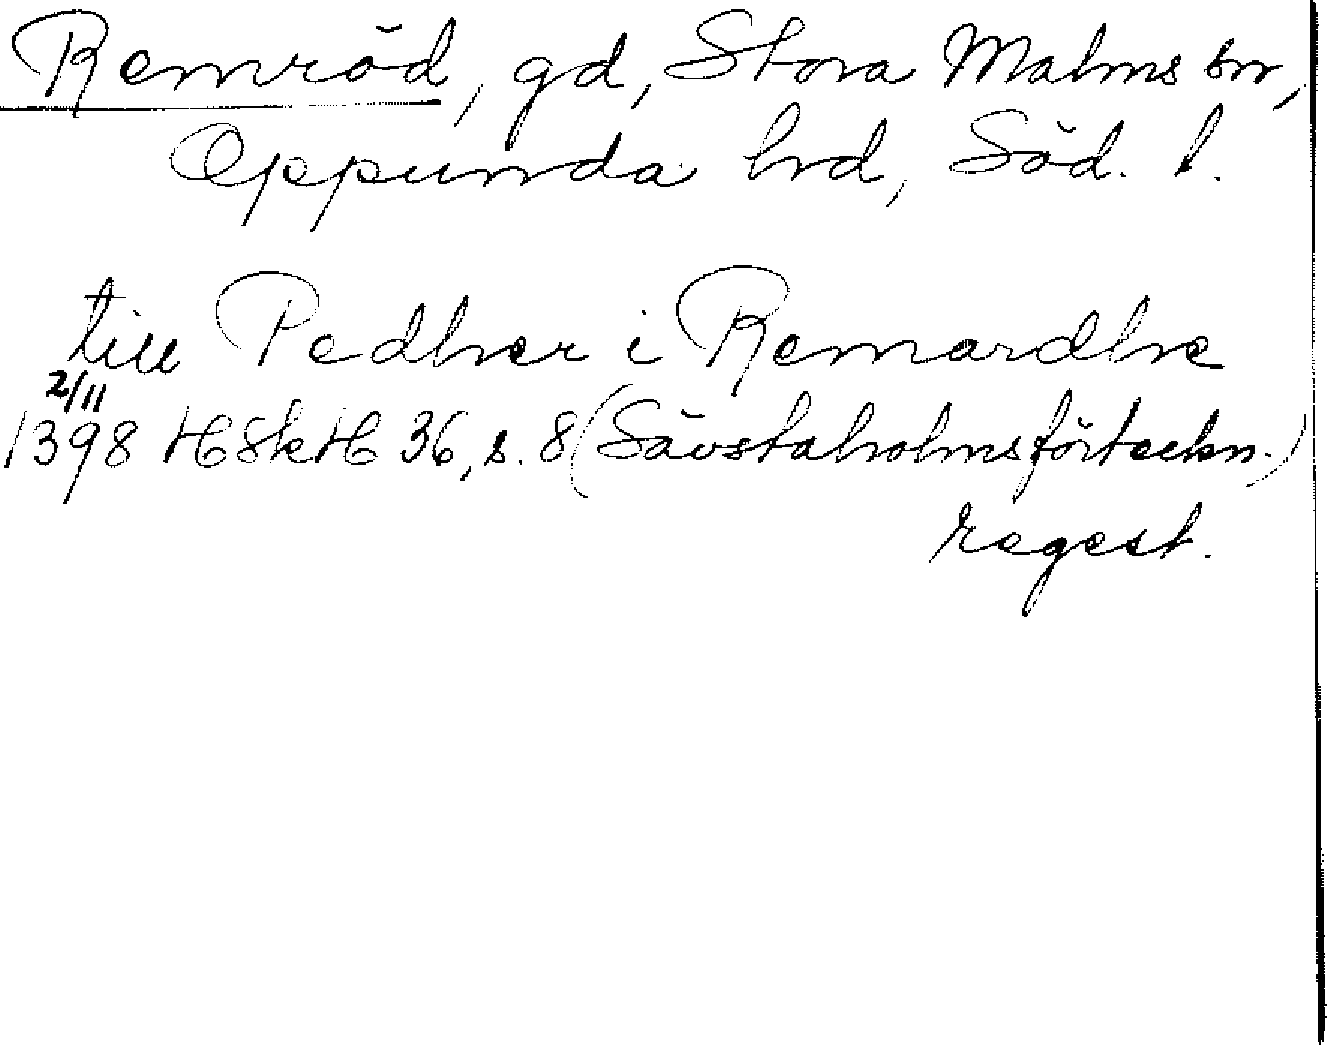 Remröd, gd, Stora Malms sn,
Oppunda hd, Söd. l.
till Pedher i Remardhe
2/11
1398 HSkH 36, s. 8 (Sävstaholmsförteckn.)
regest.